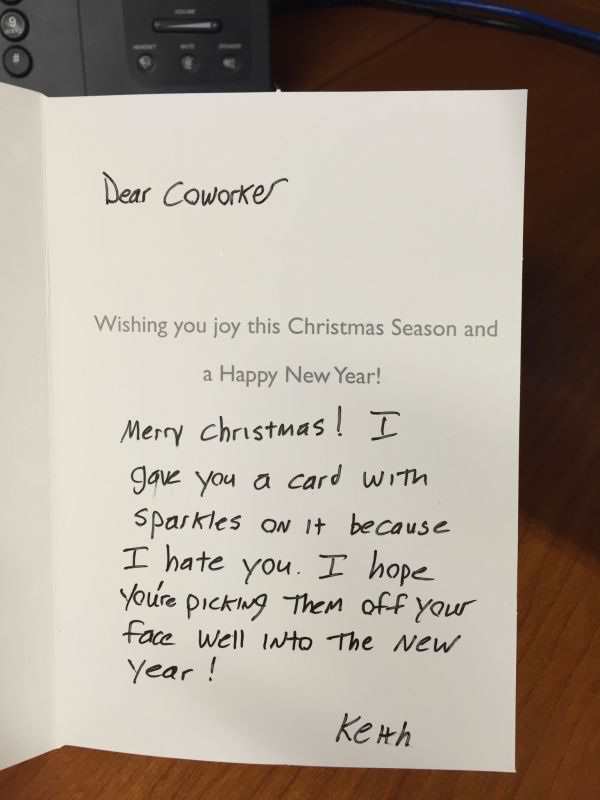 9
#
VOLUME
HEADSET MUTE SPEAKER
Dear Coworker
Wishing you joy this Christmas Season and
a Happy New Year!
Merry Christmas! I
gave you a card with
sparkles on it because
I hate you. I hope
you're picking them off your
face well into the new
year!
Keith